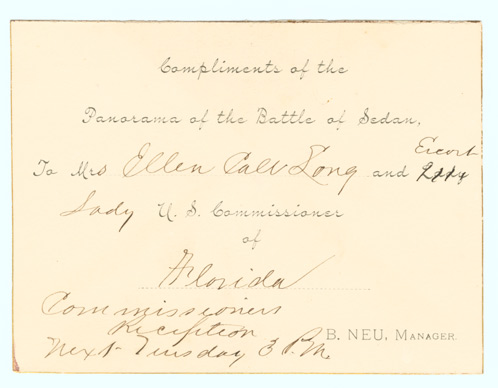 Compliments of the
Panorama of the Battle of Sedan,
Escort
To Mrs Ellen Call Long and Lady
Lady U. S. Commissioner
of
Florida
Commissioners
Reception
Next Tuesday 3 P.M.
B. NEU, MANAGER.